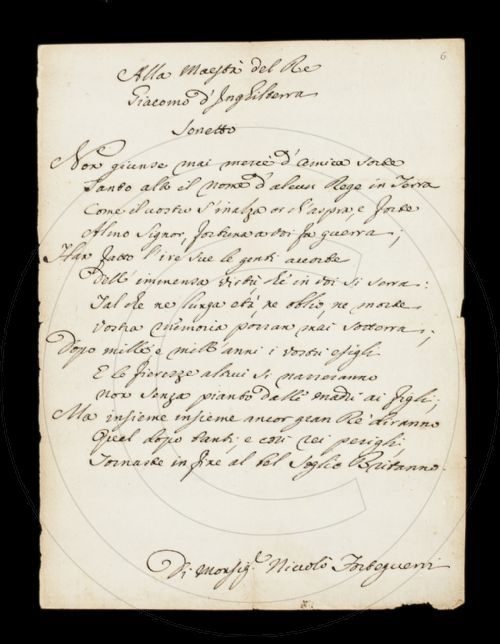 6
Alla Maestà del Re
Giacomo d'Inghilterra
Sonetto
Non giunse mai mercè d'amica sorte
Tanto alto il nome d'alcun Rege in Terra
Come il vostro s'inalza or ch'aspra, e forte
Almo Signor, fortuna a voi fa guerra;
Han fatto l'ire sue le genti accorte
Dell' immensa virtù ch'è in voi si serra:
Tal che ne lunga età, ne oblio, ne morte
Vostra memoria porran mai sotterra;
Dopo mille e mill'anni i vostri esigli
E le fierezze altrui si narreranno
non senza pianto dalle madri ai figli;
Ma insieme insieme ancor gran Re diranno
Qual dopo tanti, e così rei perigli
Tornaste in fine al bel soglio Britanno.
Di Monsig.r Niccolò Forteguerri